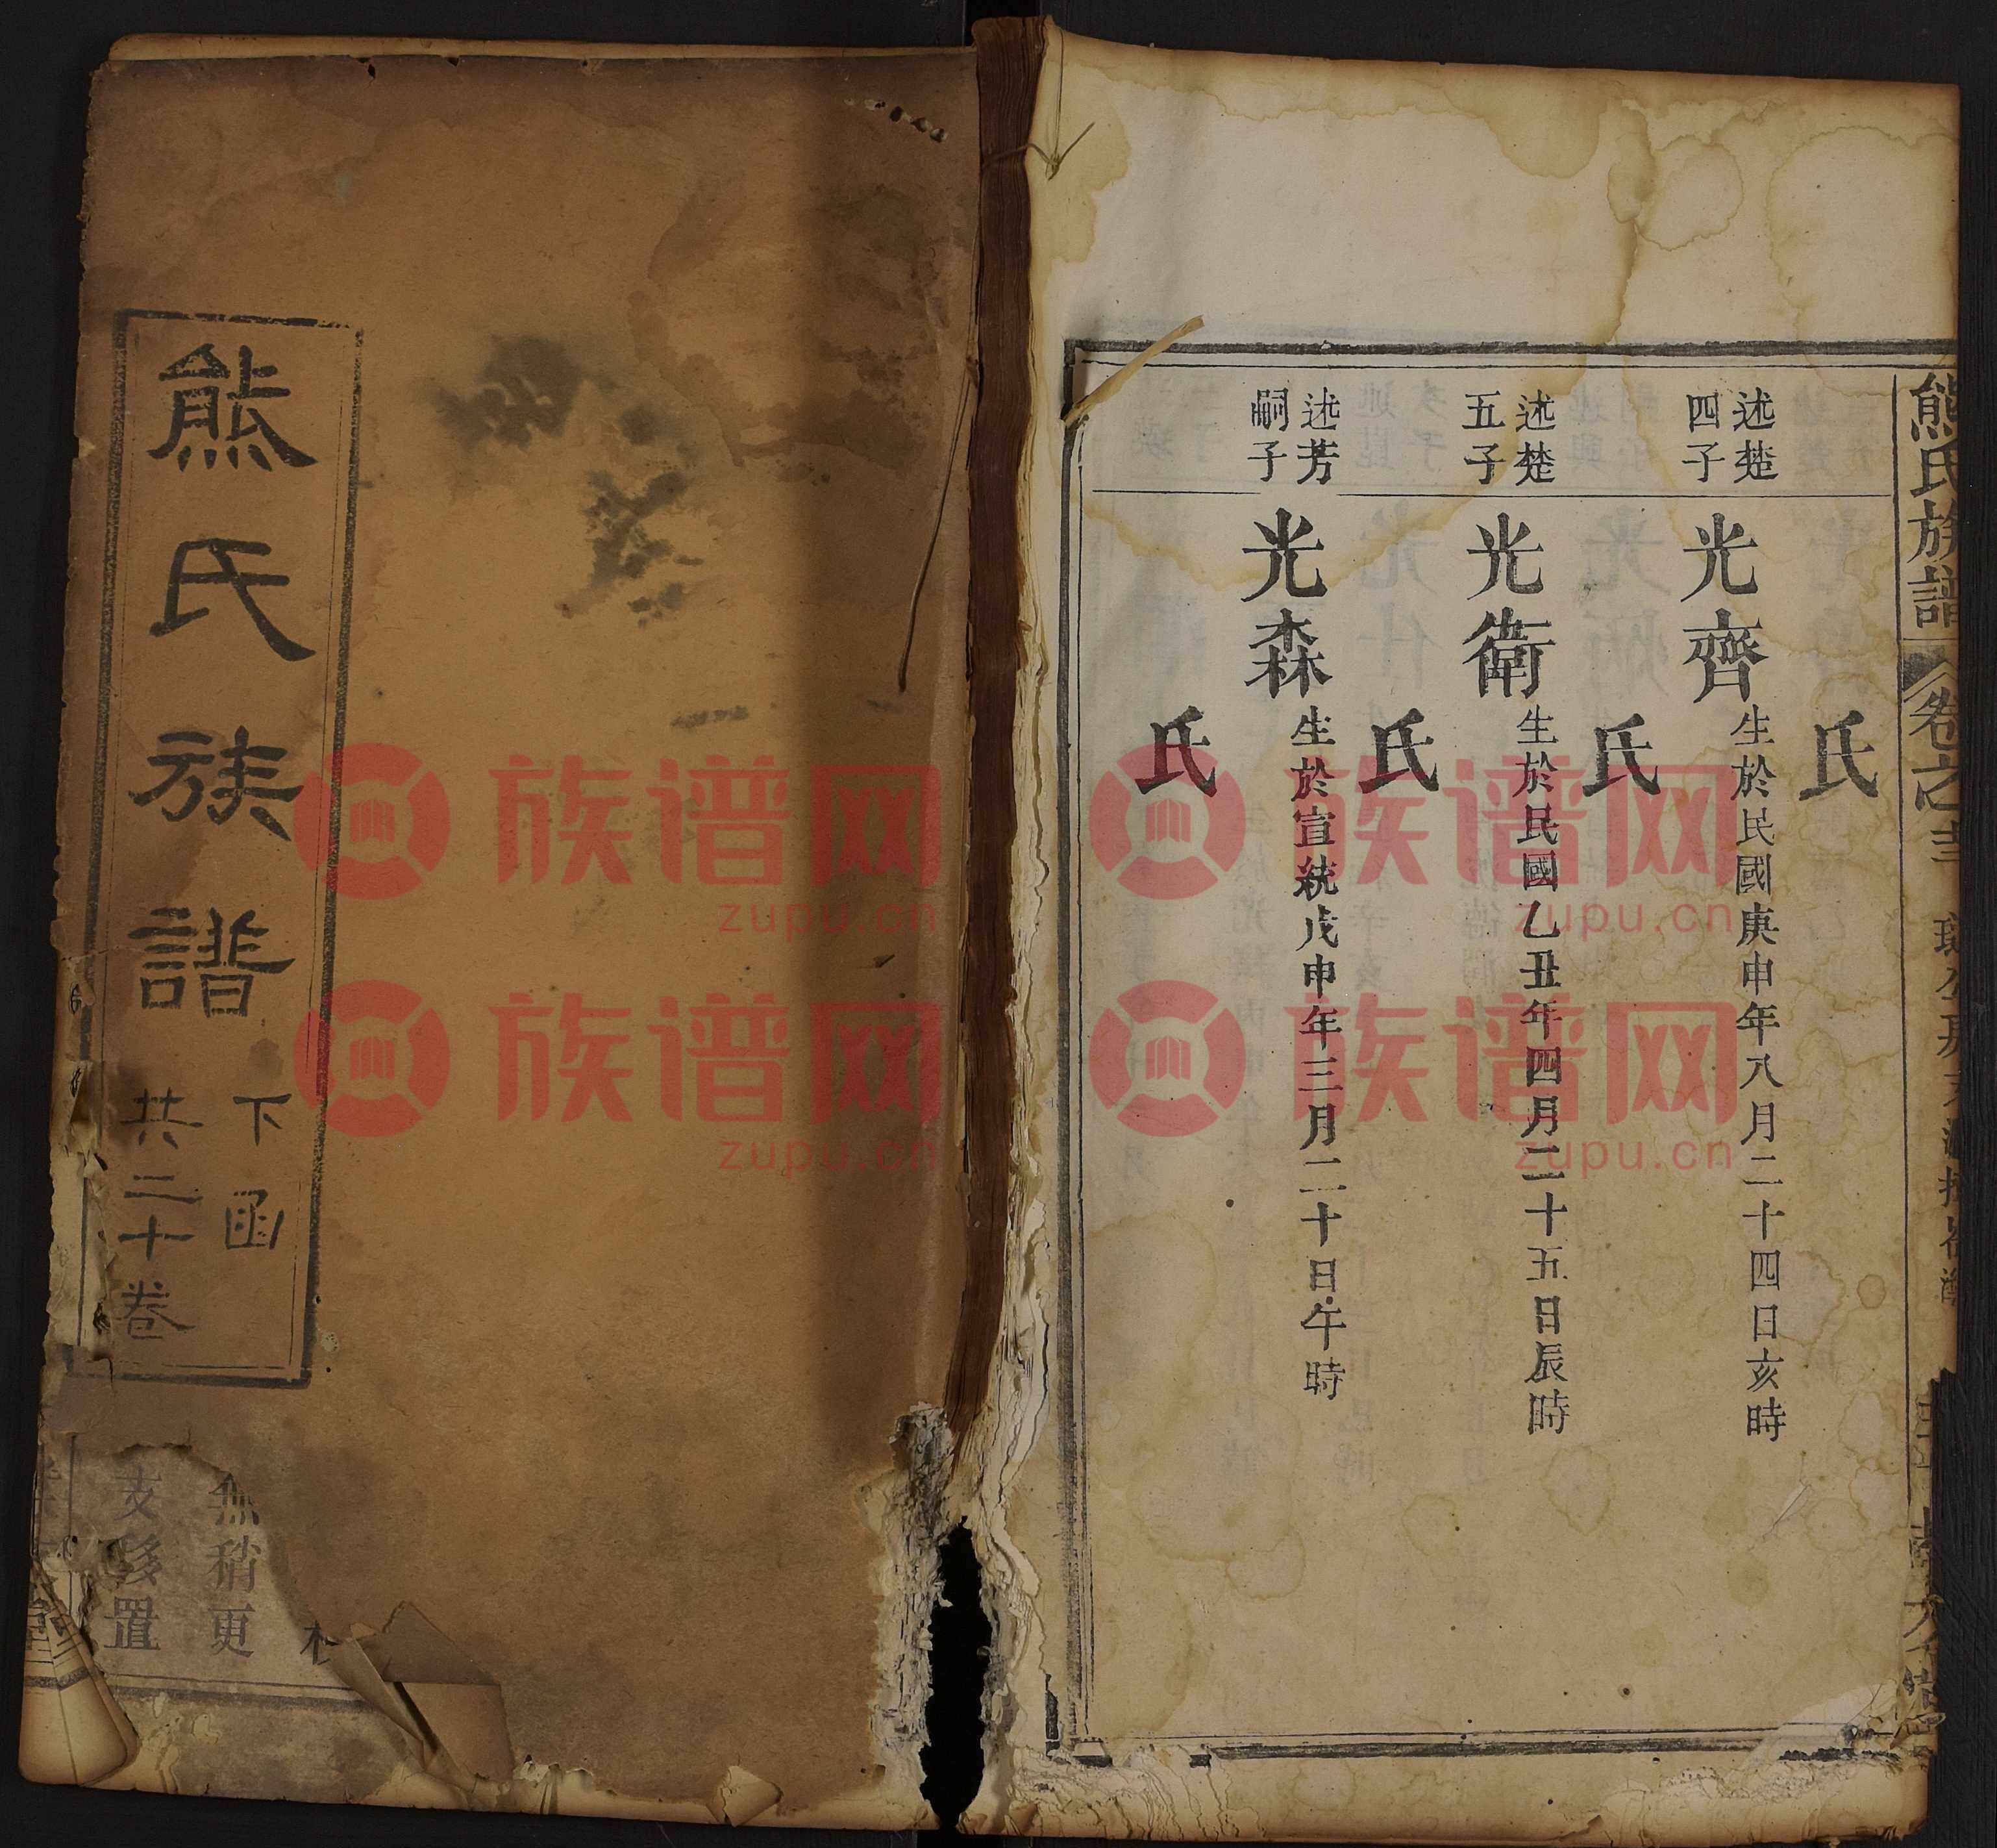 熊氏族譜
卷之
氏
述楚
四子
光齊
生於民國庚申年八月二十四日亥時
氏
述楚
五子
光衛
生於民國乙丑年四月二十五日辰時
氏
述芳
嗣子
光森
生於宣統戊申年三月二十日午時
氏
熊氏族譜
下函
共二十卷
無稍更
支移置
族谱网
zupu.cn
族谱网
zupu.cn
族谱网
zupu.cn
族谱网
zupu.cn